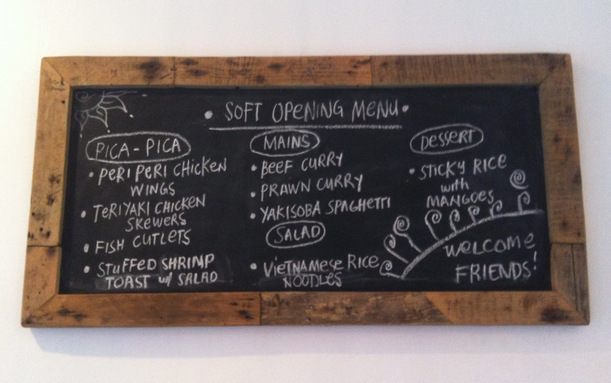 • SOFT OPENING MENU •
PICA - PICA
• PERI PERI CHICKEN
WINGS
• TERIYAKI CHICKEN
SKEWERS
• FISH CUTLETS
• STUFFED SHRIMP
TOAST w/ SALAD
MAINS
• BEEF CURRY
• PRAWN CURRY
• YAKISOBA SPAGHETTI
SALAD
• VIETNAMESE RICE
NOODLES
DESSERT
• STICKY RICE
with
MANGOES
WELCOME
FRIENDS!